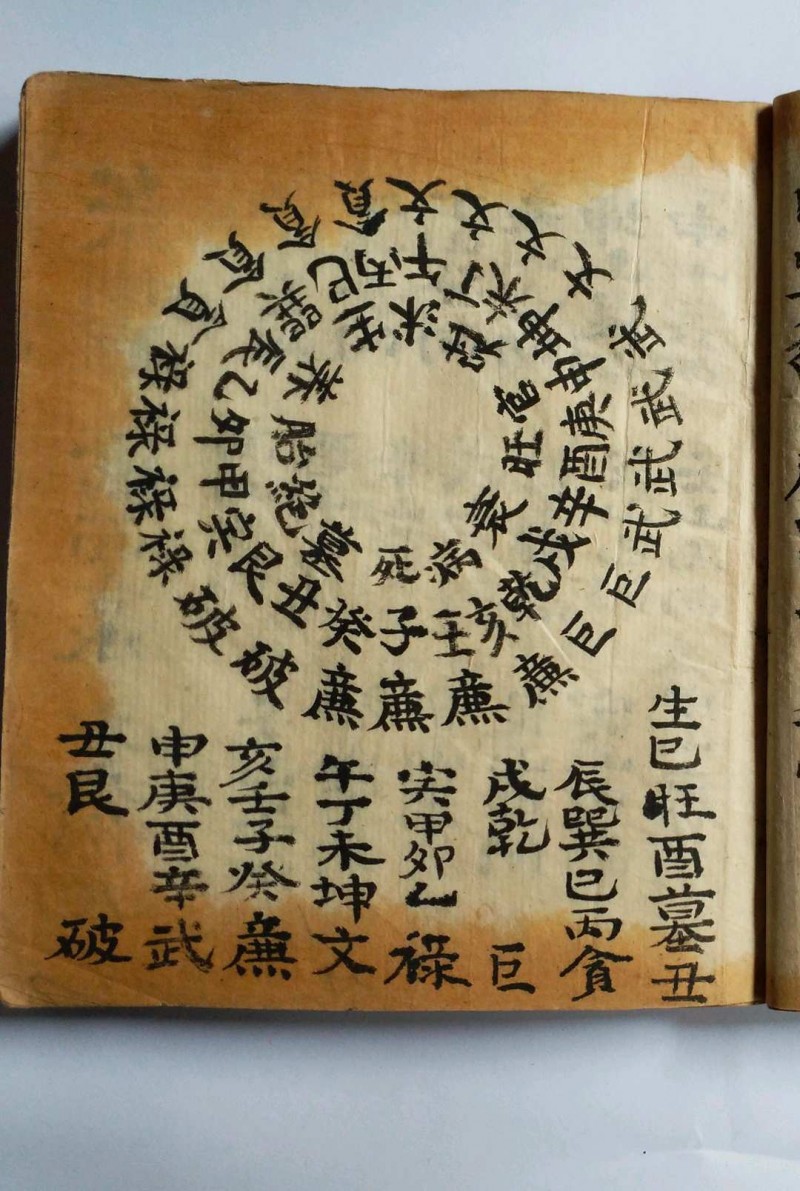 文文文文武武武武巨巨廉廉廉廉破破祿祿祿祿貪貪貪貪
午丁未坤申庚酉辛戌乾亥壬子癸丑艮寅甲卯乙辰巽巳丙
生沐冠官旺衰病死墓絶胎养
生巳旺酉墓丑
辰巽巳丙貪
戌乾 巨
寅甲卯乙祿
午丁未坤文
亥壬子癸廉
申庚酉辛武
丑艮 破